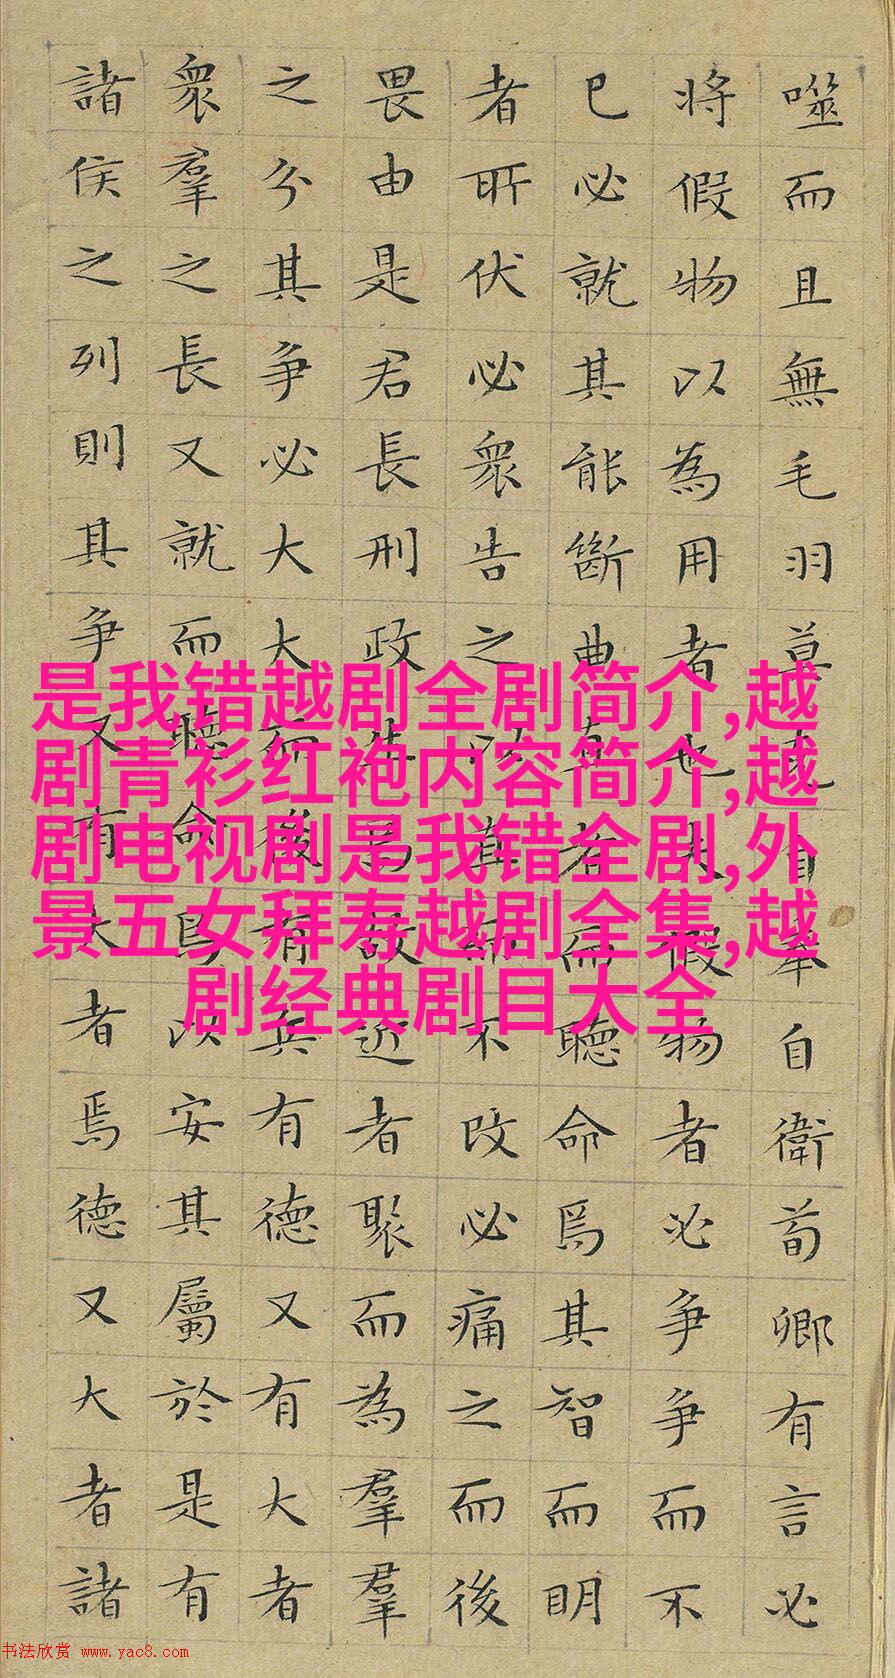 噬而且無毛羽莫克自奉自衛荀卿有言必
將假物以為用者也夫假物者必爭爭而不
已必就其能斷曲直者而聽命焉其智而明
者所伏必衆告之以直而不改必痛之而後
畏由是君長刑政生焉故近者聚而為羣羣
之分其爭必大大而後有兵有德又有大者
衆羣之長又就而聽命焉以安其屬於是有
諸侯之列則其爭又有大者焉德又大者諸
是我错越剧全剧简介,越
剧青衫红袍内容简介,越
剧电视剧是我错全剧,外
景五女拜寿越剧全集,越
剧经典剧目大全
书法欣赏 www.yac8.com